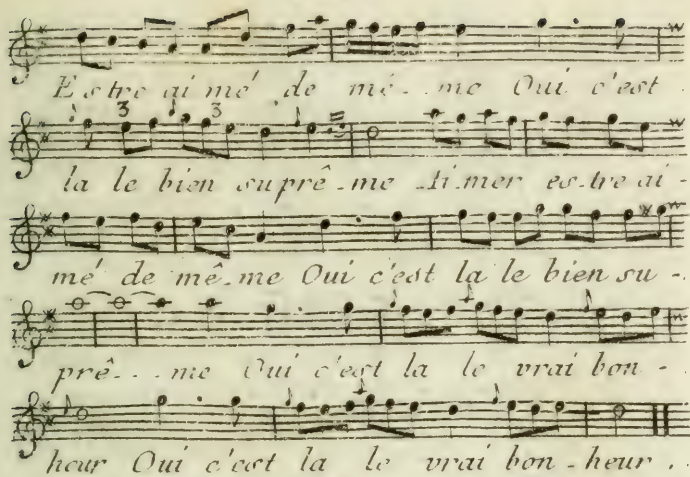 Estre aimé de mê-me Oui c'est
3 3
la le bien suprê-me Ai-mer es-tre ai-
mé de mê-me Oui c'est la le bien su-
prê-me Oui c'est la le vrai bon-
heur Oui c'est la le vrai bon-heur.